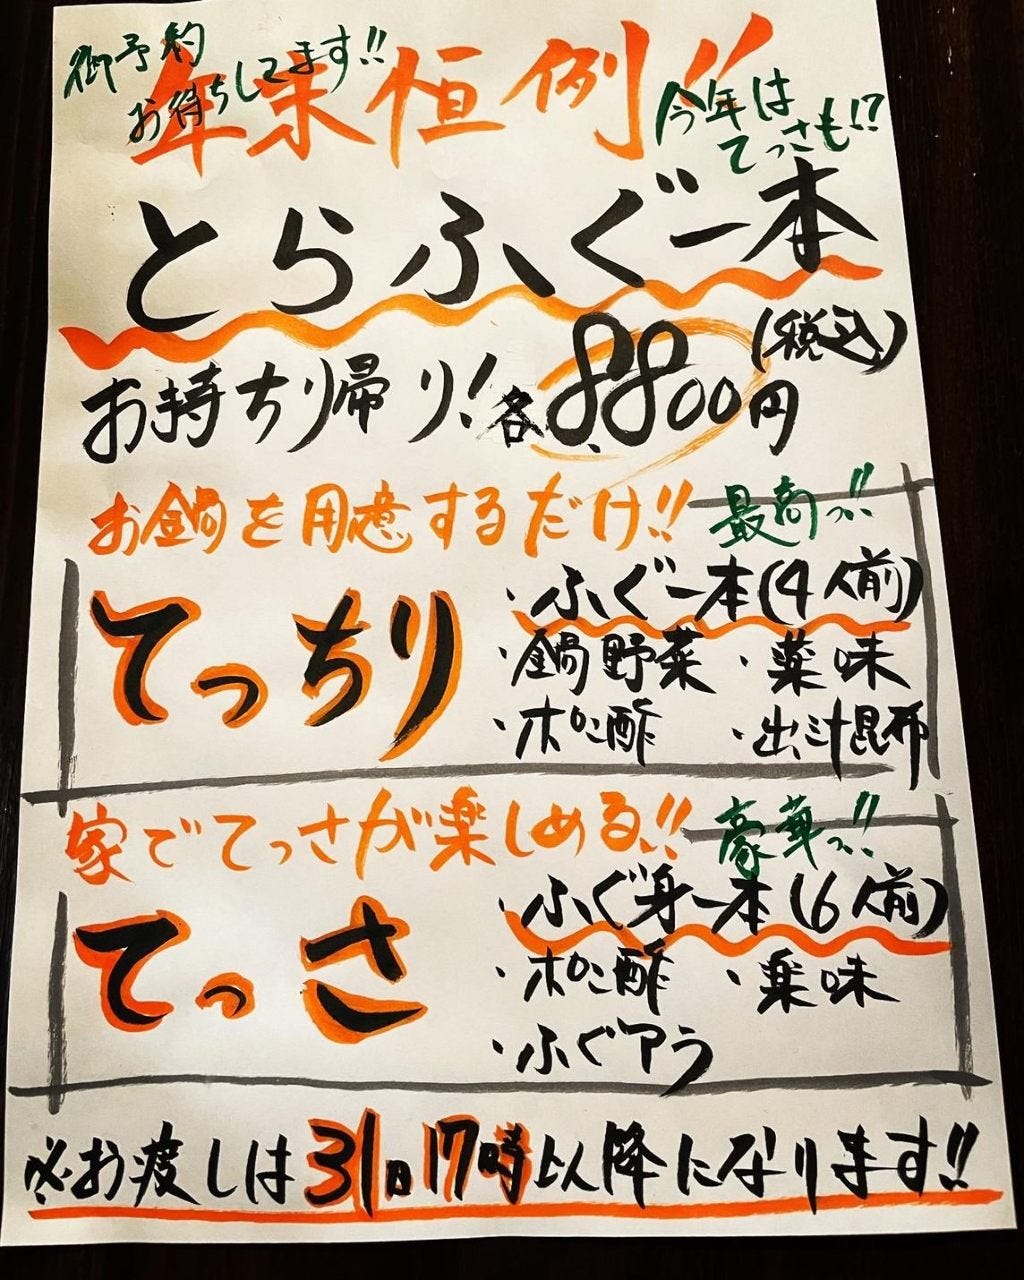 御予約
お待ちしてます!!
年末恒例!!
今年は
てっさも!?
とらふぐ一本
お持ち帰り!各8,800円(税込)
お鍋を用意するだけ!!
最高っ!!
てっちり
・ふぐ一本(4人前)
・鍋野菜 ・薬味
・ポン酢 ・出汁昆布
家でてっさが楽しめる!!
豪華っ!!
てっさ
・ふぐ身一本(6人前)
・ポン酢 ・薬味
・ふぐアラ
※お渡しは31日17時以降になります!!